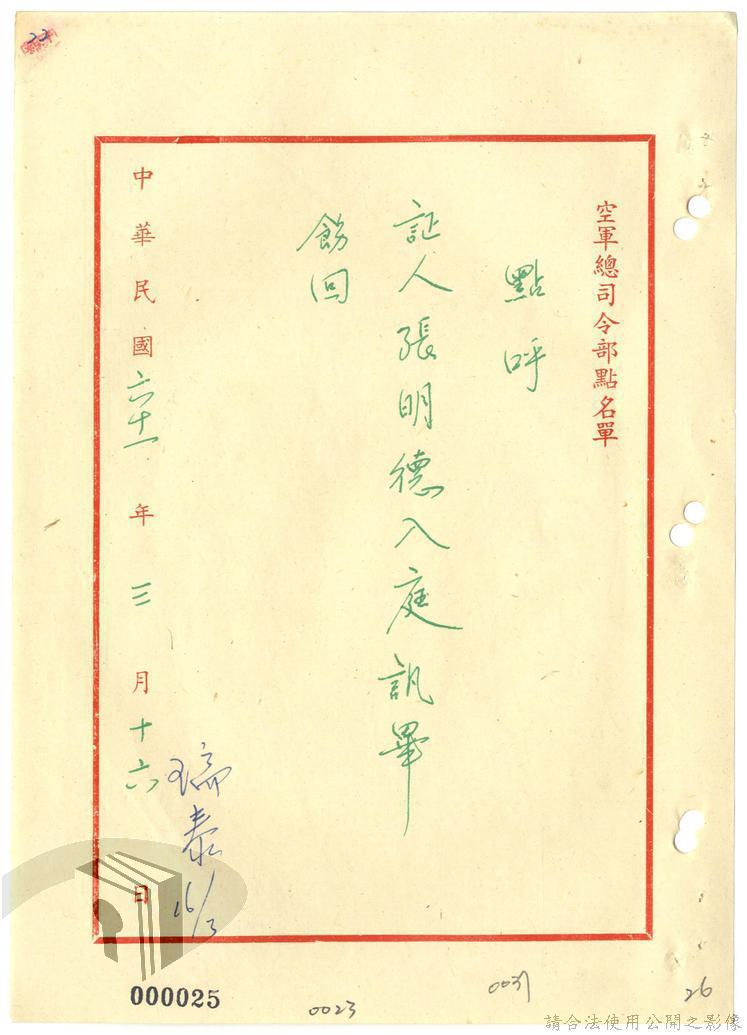 22
空軍總司令部點名單
點呼
証人張明德入庭訊畢
飭回
中華民國六十一年三月十六日
瑞泰 16/3
000025
0023
0031
26
請合法使用公開之影像